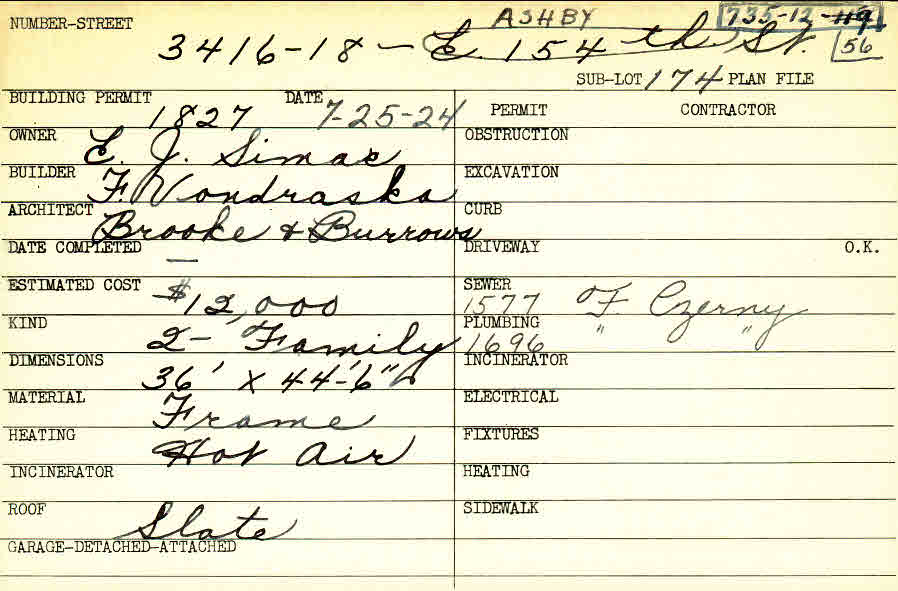 ASHBY 735-12-119
NUMBER-STREET 3416-18 - E. 154th St. 56
SUB-LOT 174 PLAN FILE
BUILDING PERMIT 1827 DATE 7-25-24
PERMIT CONTRACTOR
OWNER E. J. Simac
OBSTRUCTION
BUILDER F. Vondraska
EXCAVATION
ARCHITECT Brooke & Burrows
CURB
DATE COMPLETED —
DRIVEWAY O.K.
ESTIMATED COST $12,000
SEWER 1577 F. Czerny
KIND 2- Family
PLUMBING 1696 " "
DIMENSIONS 36' x 44'-6"
INCINERATOR
MATERIAL Frame
ELECTRICAL
HEATING Hot Air
FIXTURES
INCINERATOR
HEATING
ROOF Slate
SIDEWALK
GARAGE-DETACHED-ATTACHED